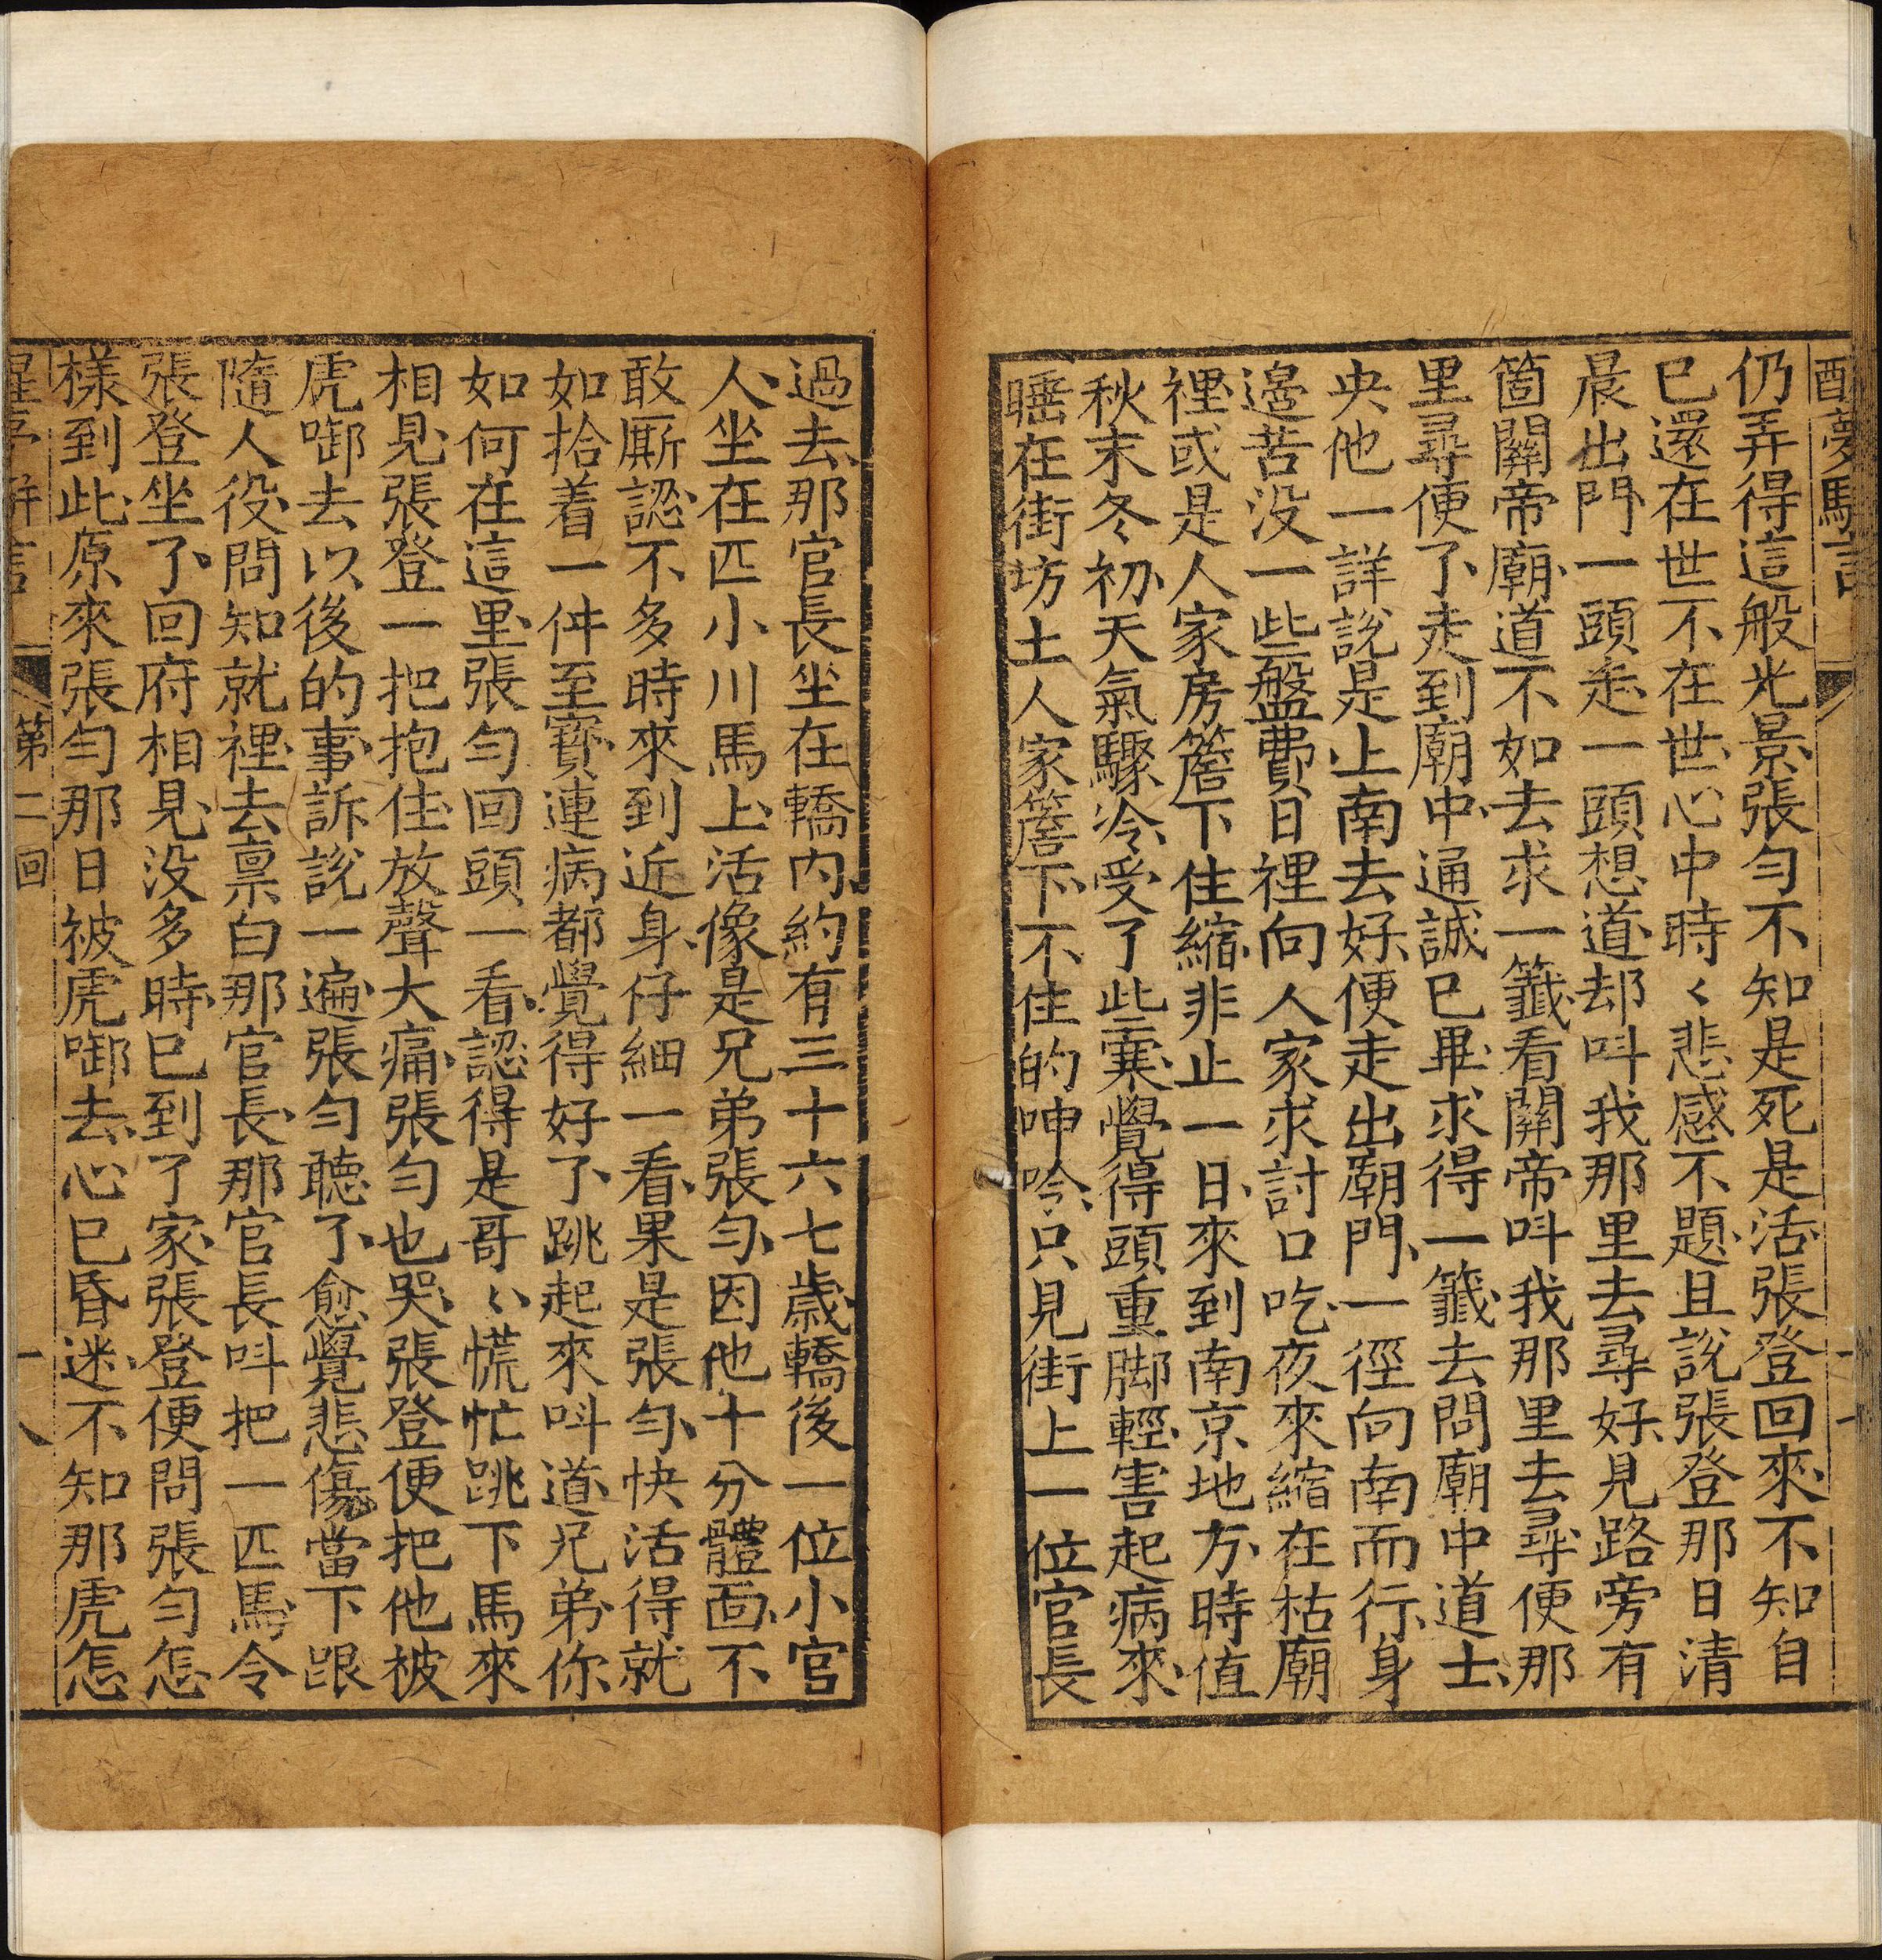 醒夢駢言
仍弄得這般光景張勻不知是死是活張登回來不知自
已還在世不在世心中時〻悲感不題且說張登那日清
晨出門一頭走一頭想道却呌我那里去尋好見路旁有
箇關帝廟道不如去求一籤看關帝呌我那里去尋便那
里尋便了走到廟中通誠已畢求得一籤去問廟中道士
央他一詳說是上南去好便走出廟門一徑向南而行身
邊苦没一些盤費日裡向人家求討口吃夜來縮在枯廟
裡或是人家房簷下住縮非止一日來到南京地方時值
秋末冬初天氣驟冷受了些寒覺得頭重脚輕害起病來
睡在街坊土人家簷下不住的呻吟只見街上一位官長
過去那官長坐在轎内約有三十六七歲轎後一位小官
人坐在匹小川馬上活像是兄弟張勻因他十分體面不
敢厮認不多時來到近身仔細一看果是張勻快活得就
如拾着一件至寶連病都覺得好了跳起來呌道兄弟你
如何在這里張勻回頭一看認得是哥〻慌忙跳下馬來
相見張登一把抱住放聲大痛張勻也哭張登便把他被
虎啣去以後的事訴說一遍張勻聽了愈覺悲傷當下跟
隨人役問知就裡去禀白那官長那官長呌把一匹馬令
張登坐了回府相見没多時已到了家張登便問張勻怎
樣到此原來張勻那日被虎啣去心已昏迷不知那虎怎
第二回
十八